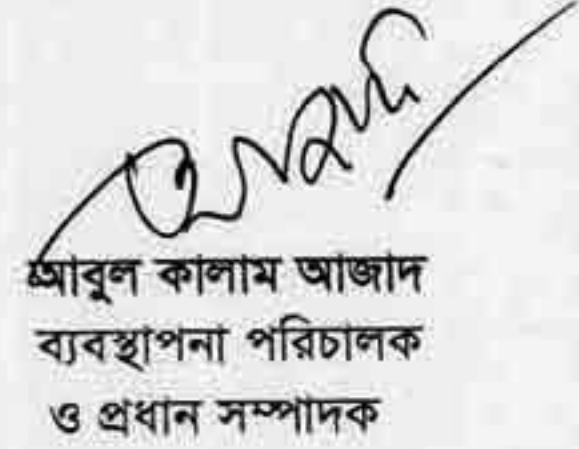 আবুল কালাম আজাদ
ব্যবস্থাপনা পরিচালক
ও প্রধান সম্পাদক